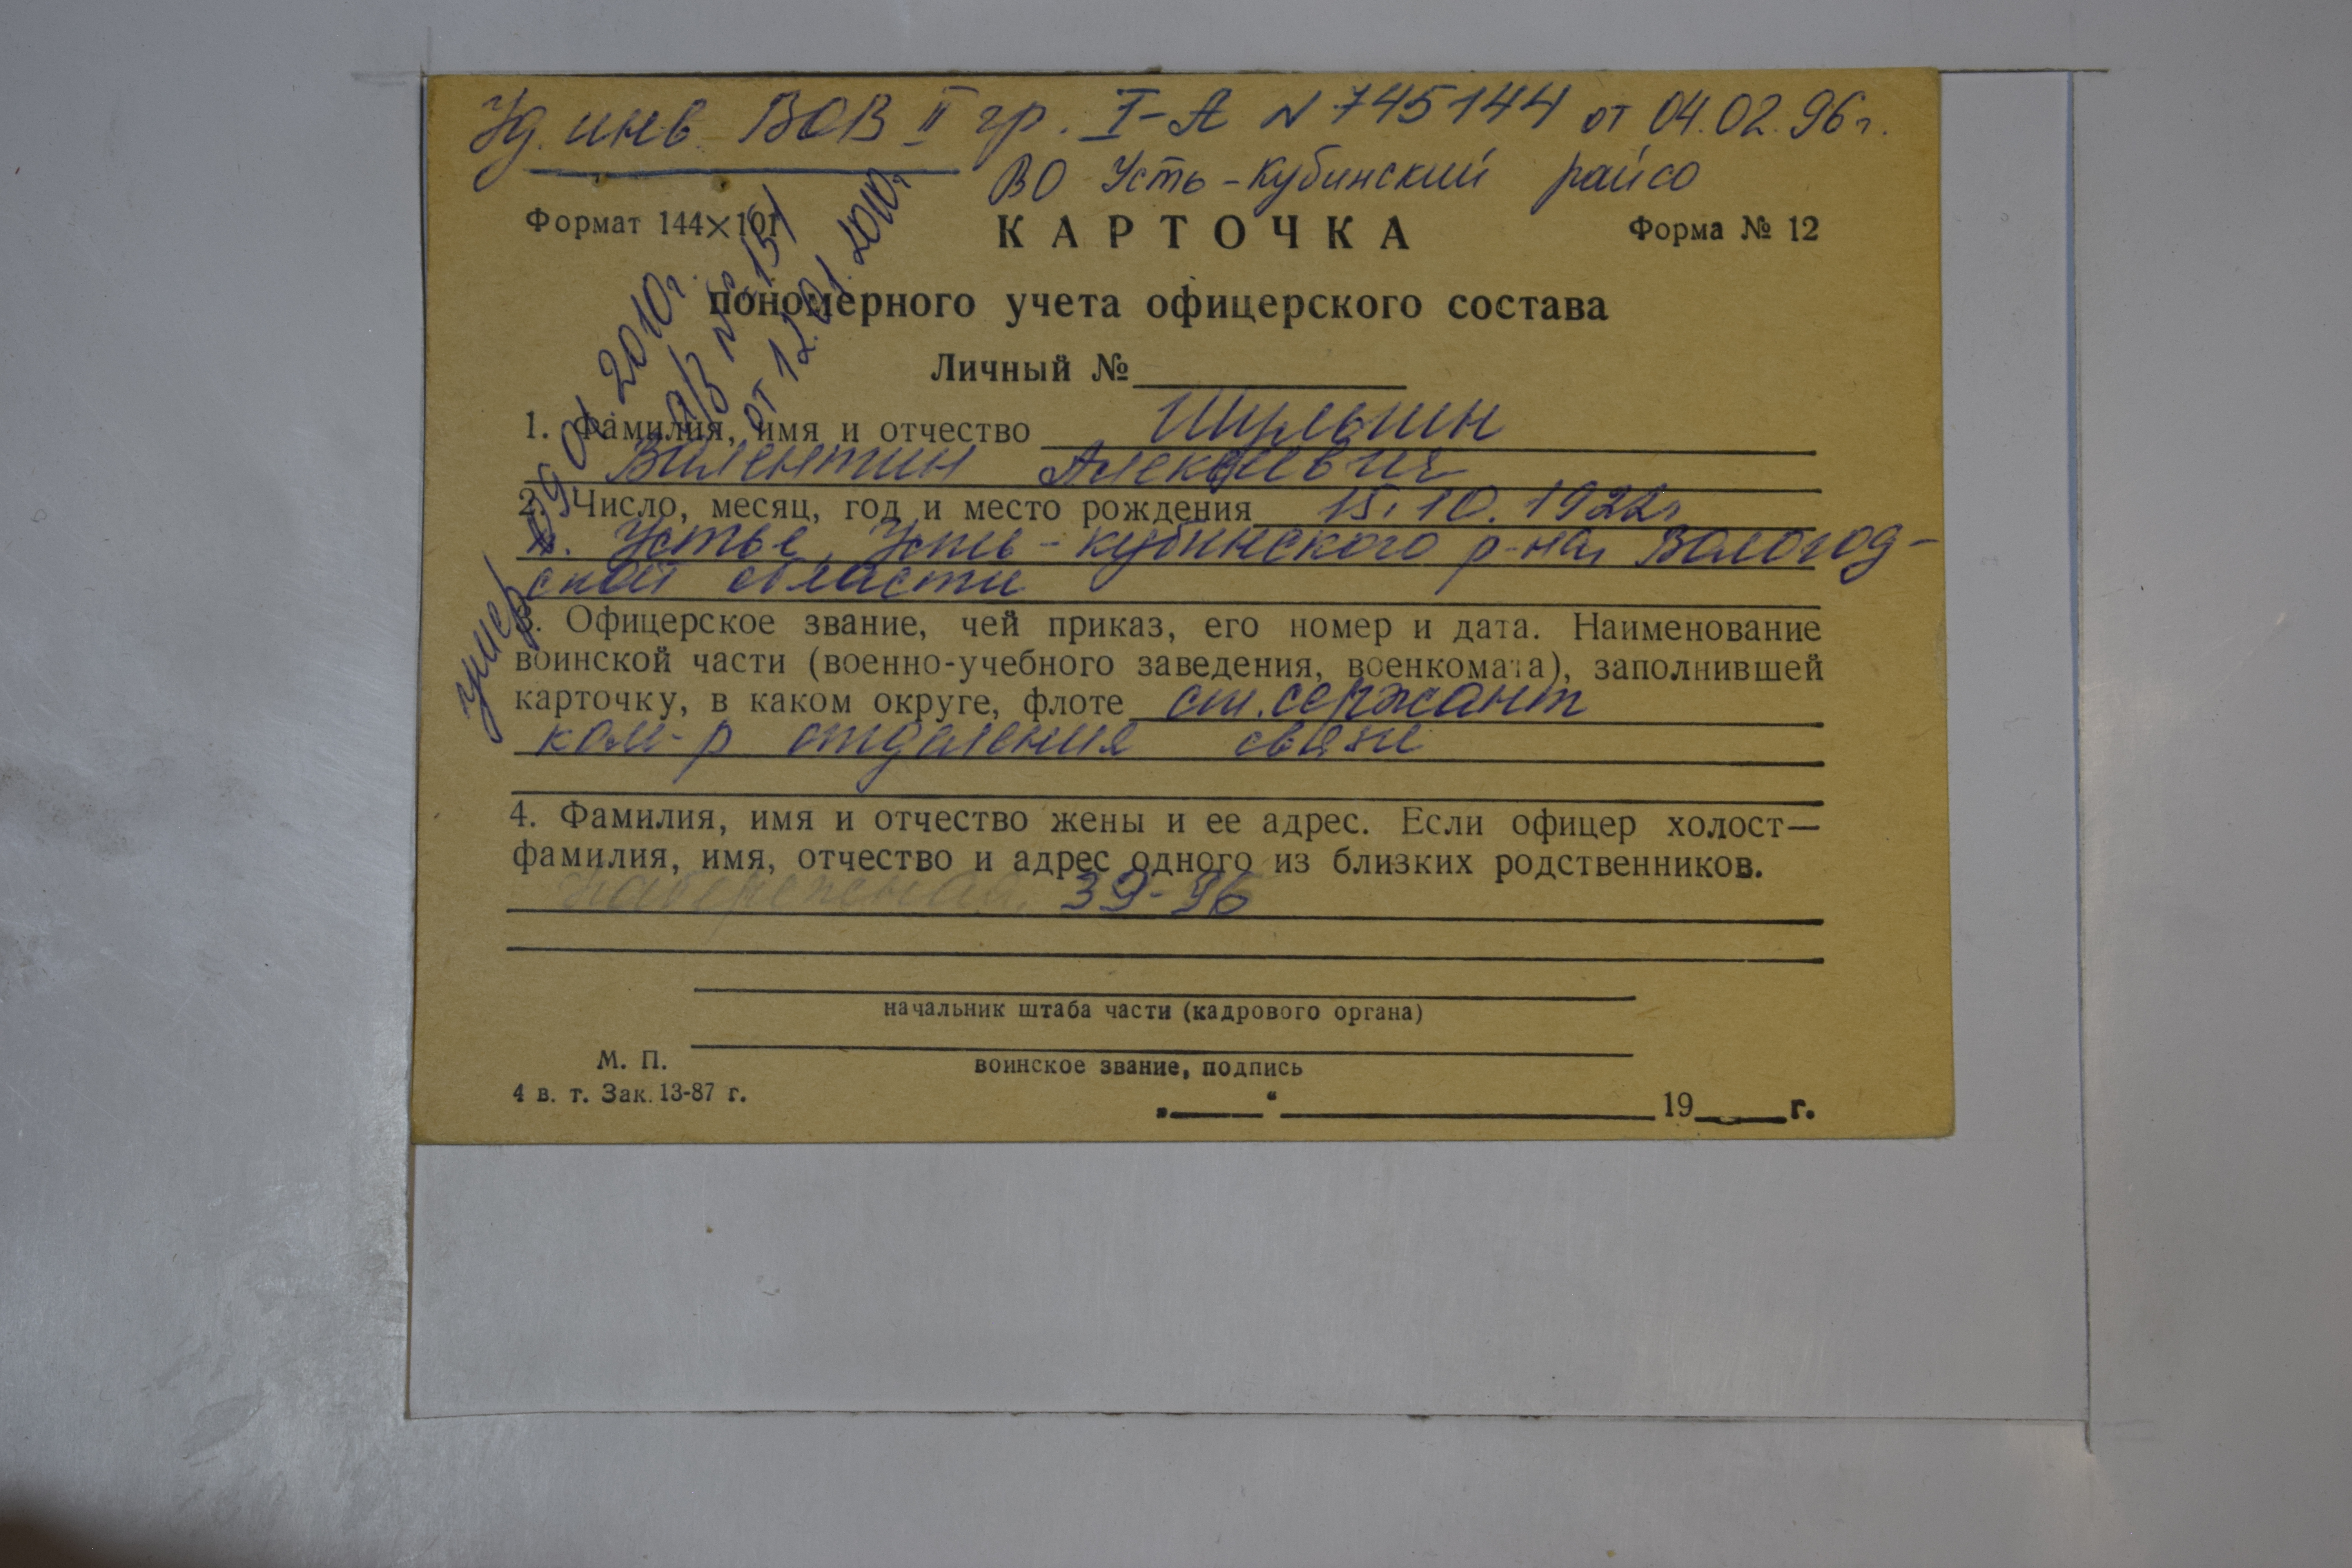 Уд. инв. ВОВ II гр. I-А N 745144 от 04.02.96 г.
ВО Усть-Кубинский райсо
Формат 144×101
КАРТОЧКА
Форма № 12
пономерного учета офицерского состава
Личный №
1. Фамилия, имя и отчество Шульгин
Валентин Алексеевич
2. Число, месяц, год и место рождения 15.10.1922г
п. Устье, Усть-Кубинского р-на, Вологод-
ской области
3. Офицерское звание, чей приказ, его номер и дата. Наименование
воинской части (военно-учебного заведения, военкомата), заполнившей
карточку, в каком округе, флоте ст. сержант
ком-р отделения связи
4. Фамилия, имя и отчество жены и ее адрес. Если офицер холост—
фамилия, имя, отчество и адрес одного из близких родственников.
Набережная, 39-96
начальник штаба части (кадрового органа)
М. П.
воинское звание, подпись
4 в. т. Зак. 13-87 г.
„ “ 19 г.
умер 09.01.2010г.
а/з № 15
от 12.01.2010г